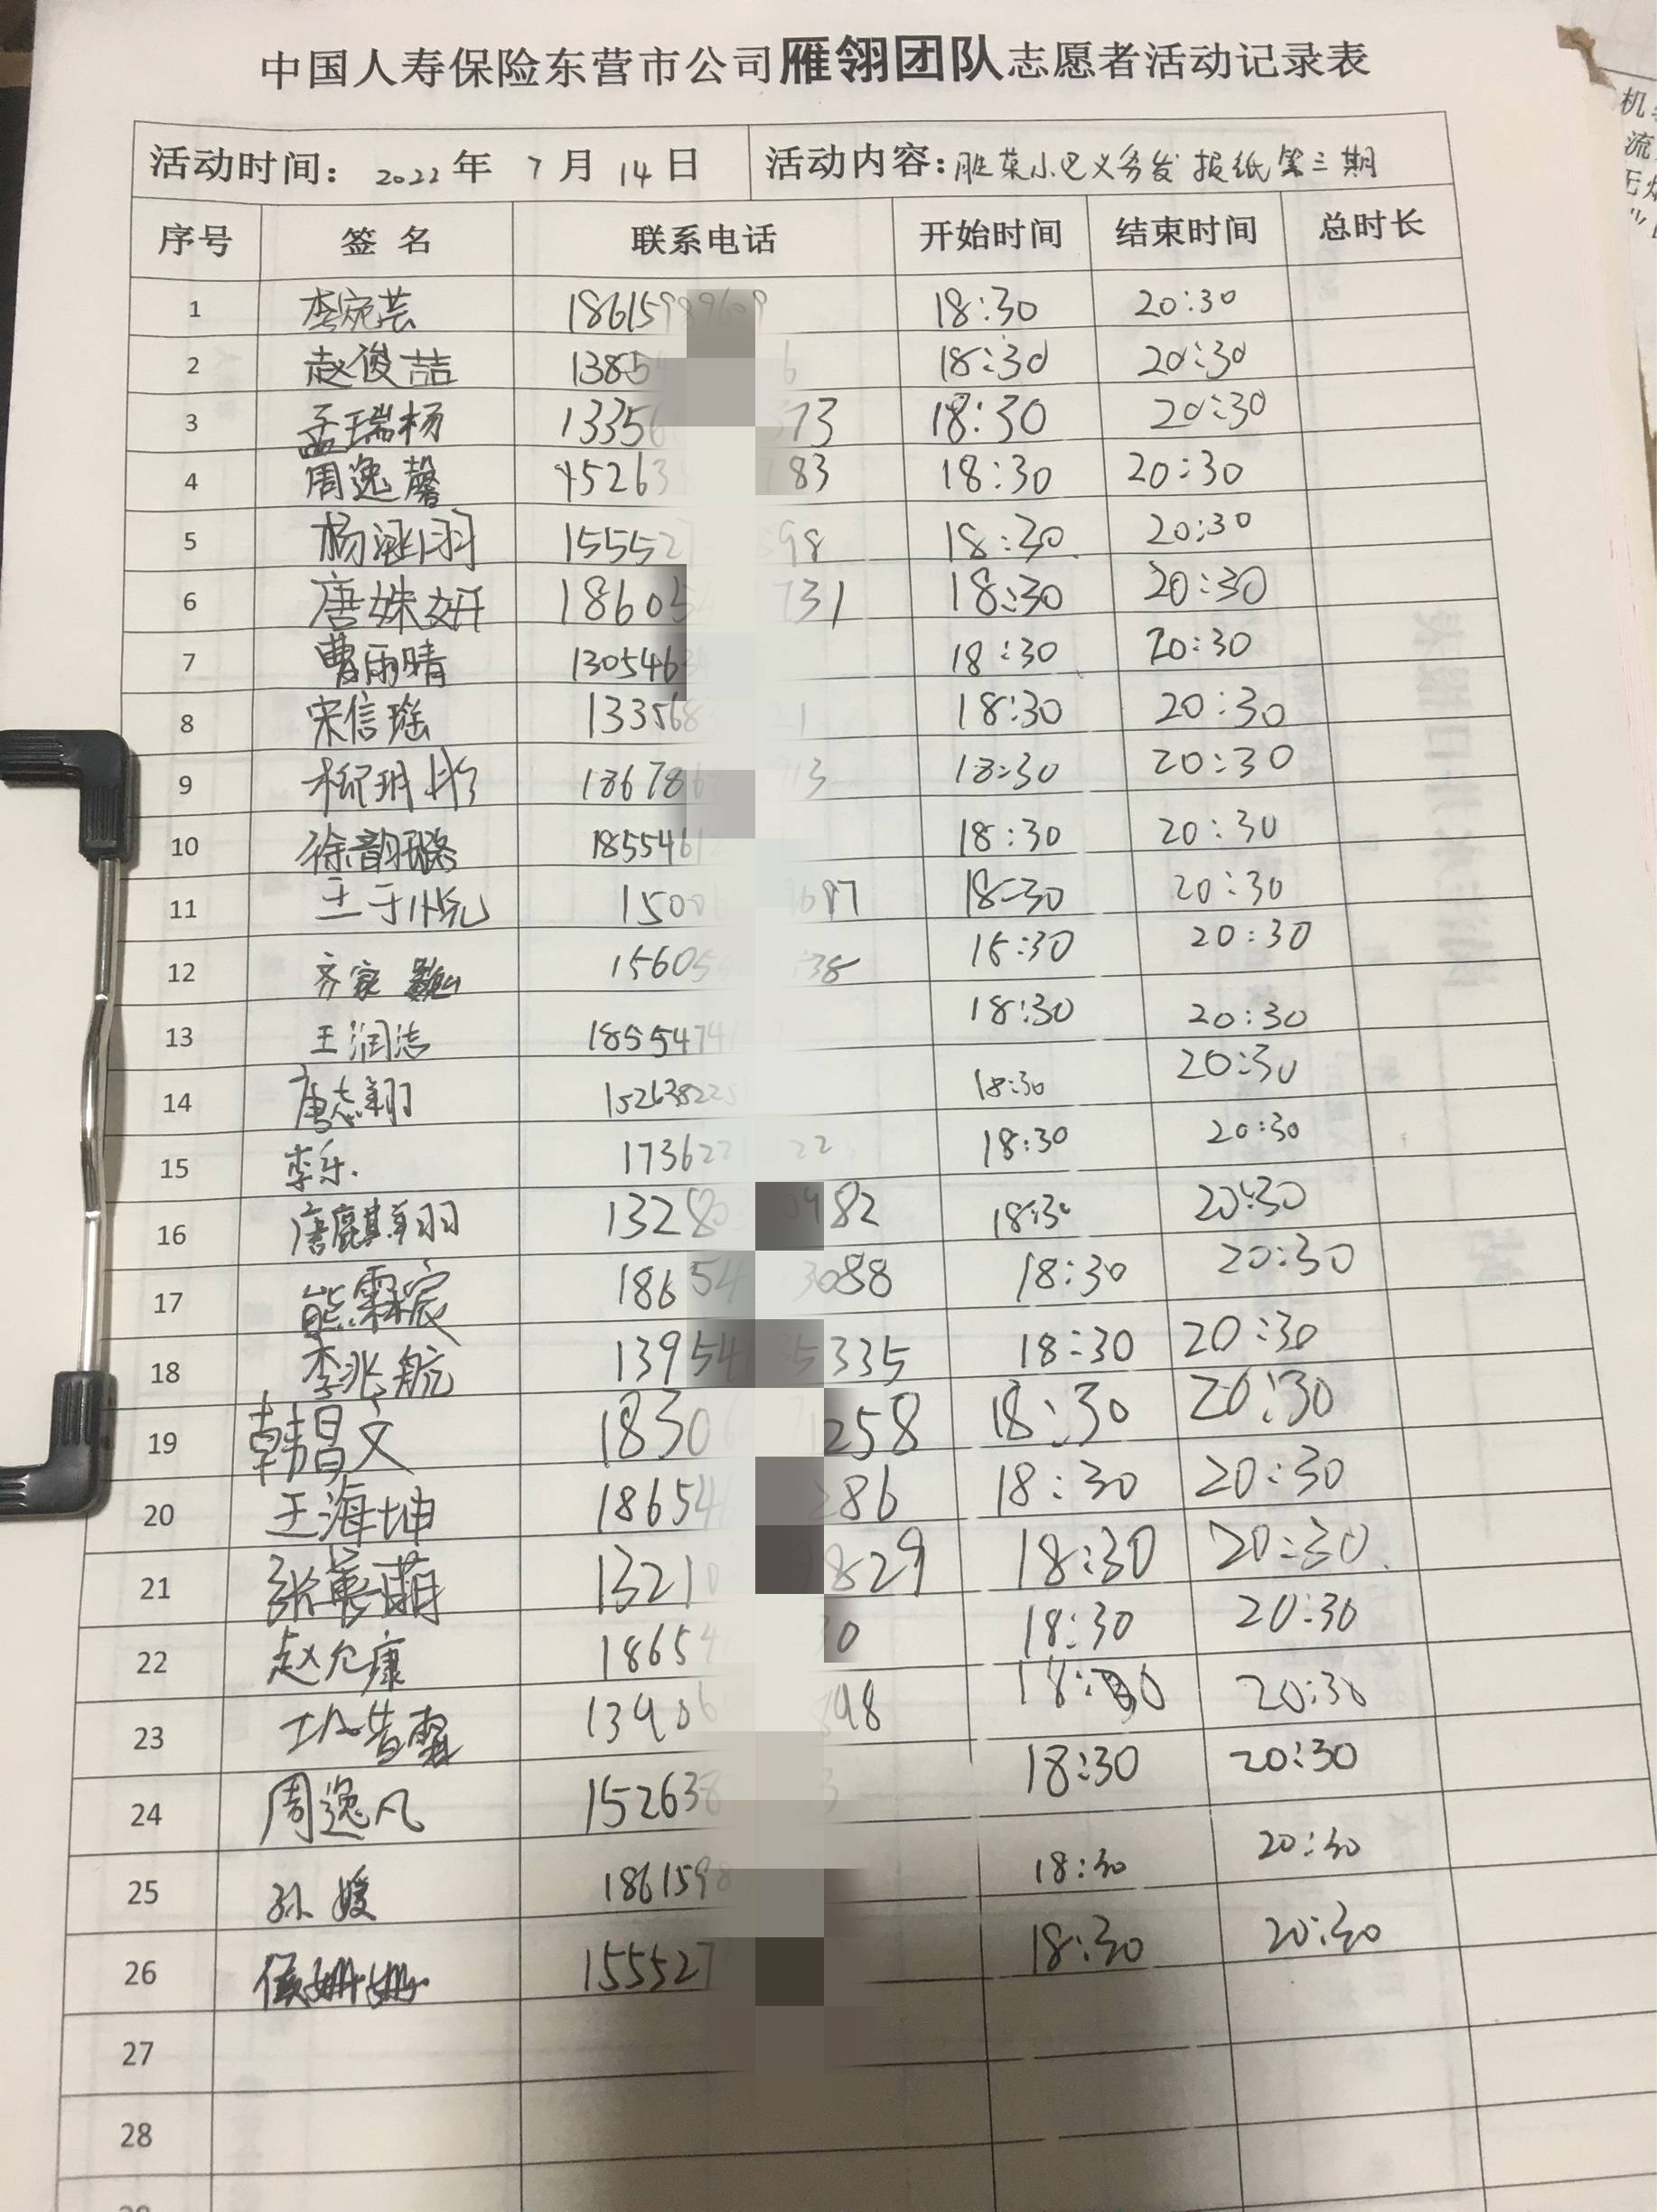 中国人寿保险东营市公司雁翎团队志愿者活动记录表
活动时间： 2022 年 7 月 14 日 活动内容：胜莱小巴义务发报纸第三期
序号 签 名 联系电话 开始时间 结束时间 总时长
1 李宛芸 18615 18:30 20:30
2 赵俊喆 1385 6 18:30 20:30
3 孟瑞杨 1335 373 18:30 20:30
4 周逸馨 15263 83 18:30 20:30
5 杨 羽 15552 98 18:30 20:30
6 唐姝妍 18605 731 18:30 20:30
7 曹雨晴 130546 18:30 20:30
8 宋信瑶 13356 1 18:30 20:30
9 柳玥彤 18678 13 18:30 20:30
10 徐韵璐 185546 18:30 20:30
11 王于悦 1500 687 18:30 20:30
12 齐家巍 15605 38 18:30 20:30
13 王润洁 1855474 18:30 20:30
14 唐志翔 152638225 18:30 20:30
15 李乐 17362 22 18:30 20:30
16 唐麒翔 1328 0982 18:30 20:30
17 熊霖宸 18654 3088 18:30 20:30
18 李兆航 13954 5335 18:30 20:30
19 韩昌文 1830 1258 18:30 20:30
20 王海坤 18654 286 18:30 20:30
21 张 萌 1321 829 18:30 20:30
22 赵允康 1865 30 18:30 20:30
23 13906 98 18:30 20:30
24 周逸凡 15263 3 18:30 20:30
25 孙媛 186159 18:30 20:30
26 侯姗姗 155527 18:30 20:30
27
28